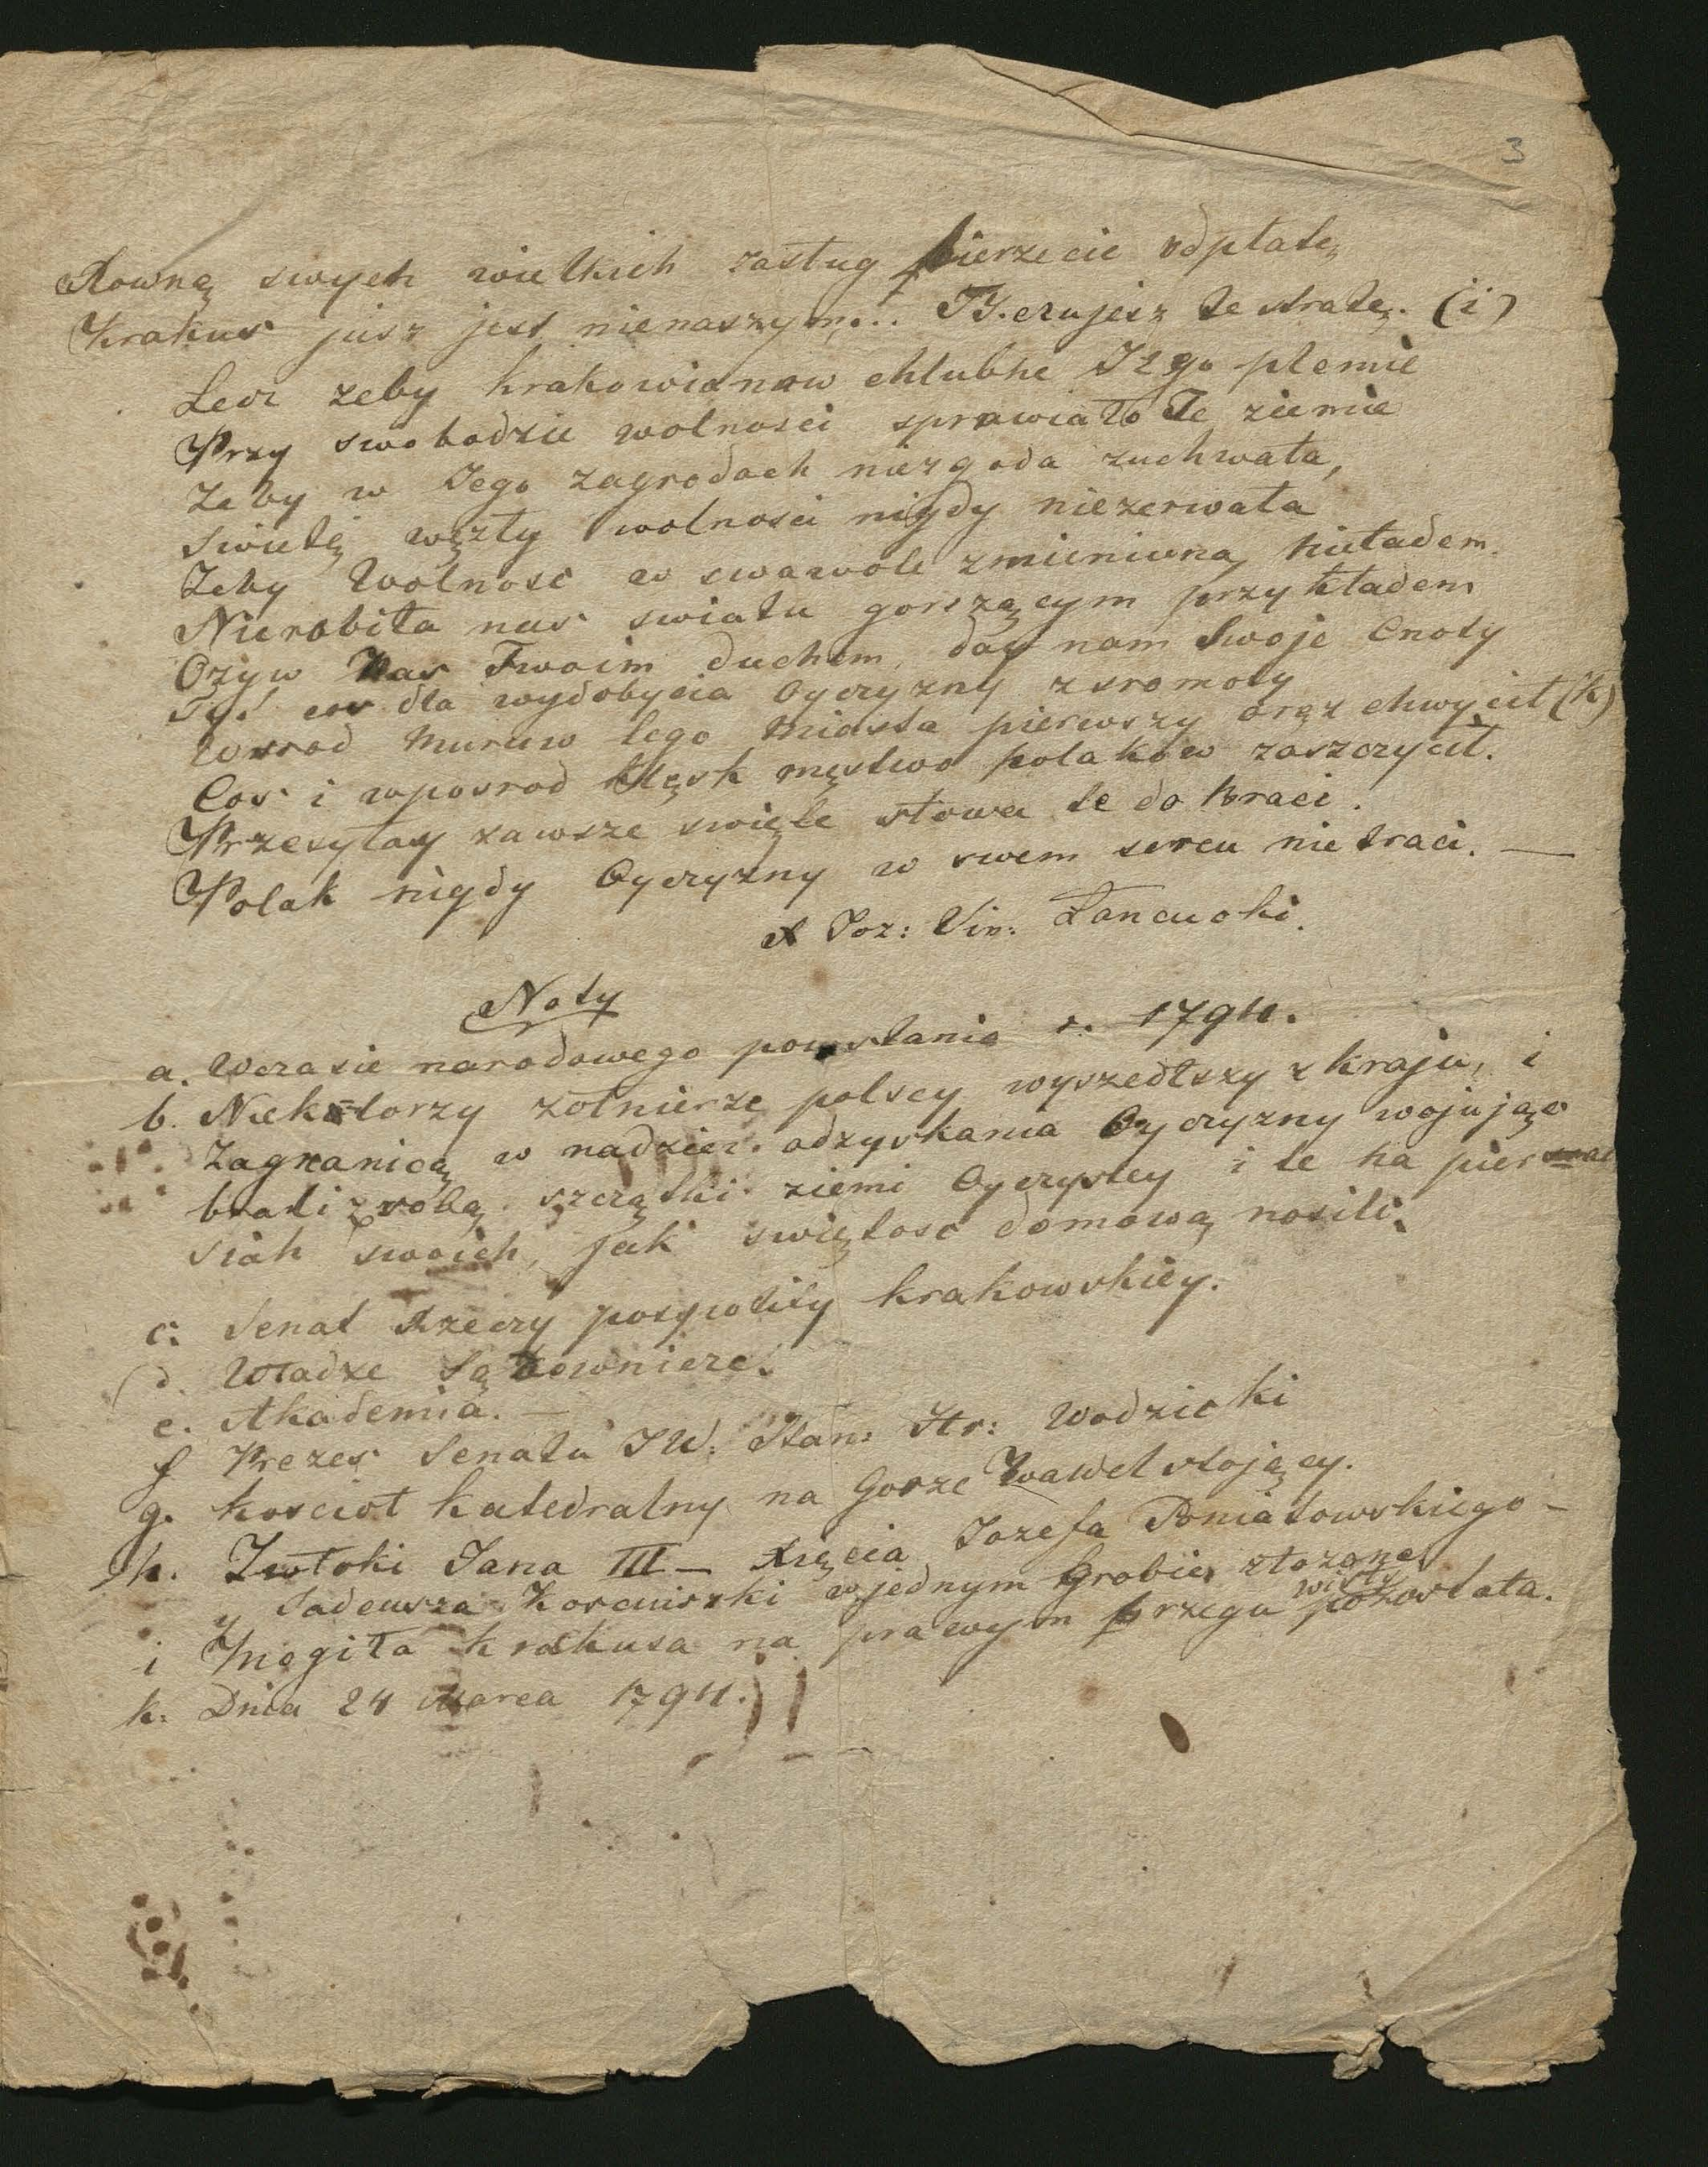 3
Rowną swych wielkich zasług bierzecie odpłatę
Krakus jusz jest nienaszym... Ty.czujesz te stratę. (i)
Lecz zeby krakowianow chlubne Jego plemie
Przy swobodzie wolnosci sprawiało Te ziemie
Zeby w Jego zagrodach niezgoda zuchwała,
Swietę węzły wolnosci nigdy niezerwała
Zeby Wolnosc w swawole zmieniwna, nieładem.
Nierobiła nas swiatu gorszącym przykładem
Ozyw Nas Twoim duchem, day nam Swoje Cnoty
Tys! cos dla wydobycia Oyczyzny zsromoty
Wsrod Murow tego Miasta pierwszy oręz chwycił (k)
Cos i wposrod klęsk męstwo polakow zaszczycił.
Przesyłay zawsze swięte słowa te do Braci.
Polak nigdy Oyczyzny w swem sercu nie traci. —
X Joz: Vin: Łancucki.
Noty
a. Wczasie narodowego powstania r. 1794.
b. Niektorzy zołnierze polscy wyszedłszy z kraju, i
Zagranicą w nadziei odzyskania Oyczyzny wojując
brali z sobą szczątki ziemi Oyczystey i te na pier
siah swoich, jak swiętosc domową nosili.
c. Senat Rzeczy pospolity krakowskiey.
d. Władze Sądownicze.
e. Akademia. —
f Prezes Senatu JW: Stan: Hr: Wodzicki
g. koscioł katedralny na Gorze Wawel stojący.
h. Zwłoki Jana III — Xięcia Jozefa Poniatowskiego —
y Tadeusza Kosciuszki w jednym Grobie złozone
i Mogiła krakusa na prawym brzegu wisły pozostała.
k. Dnia 24 Marca 1794.